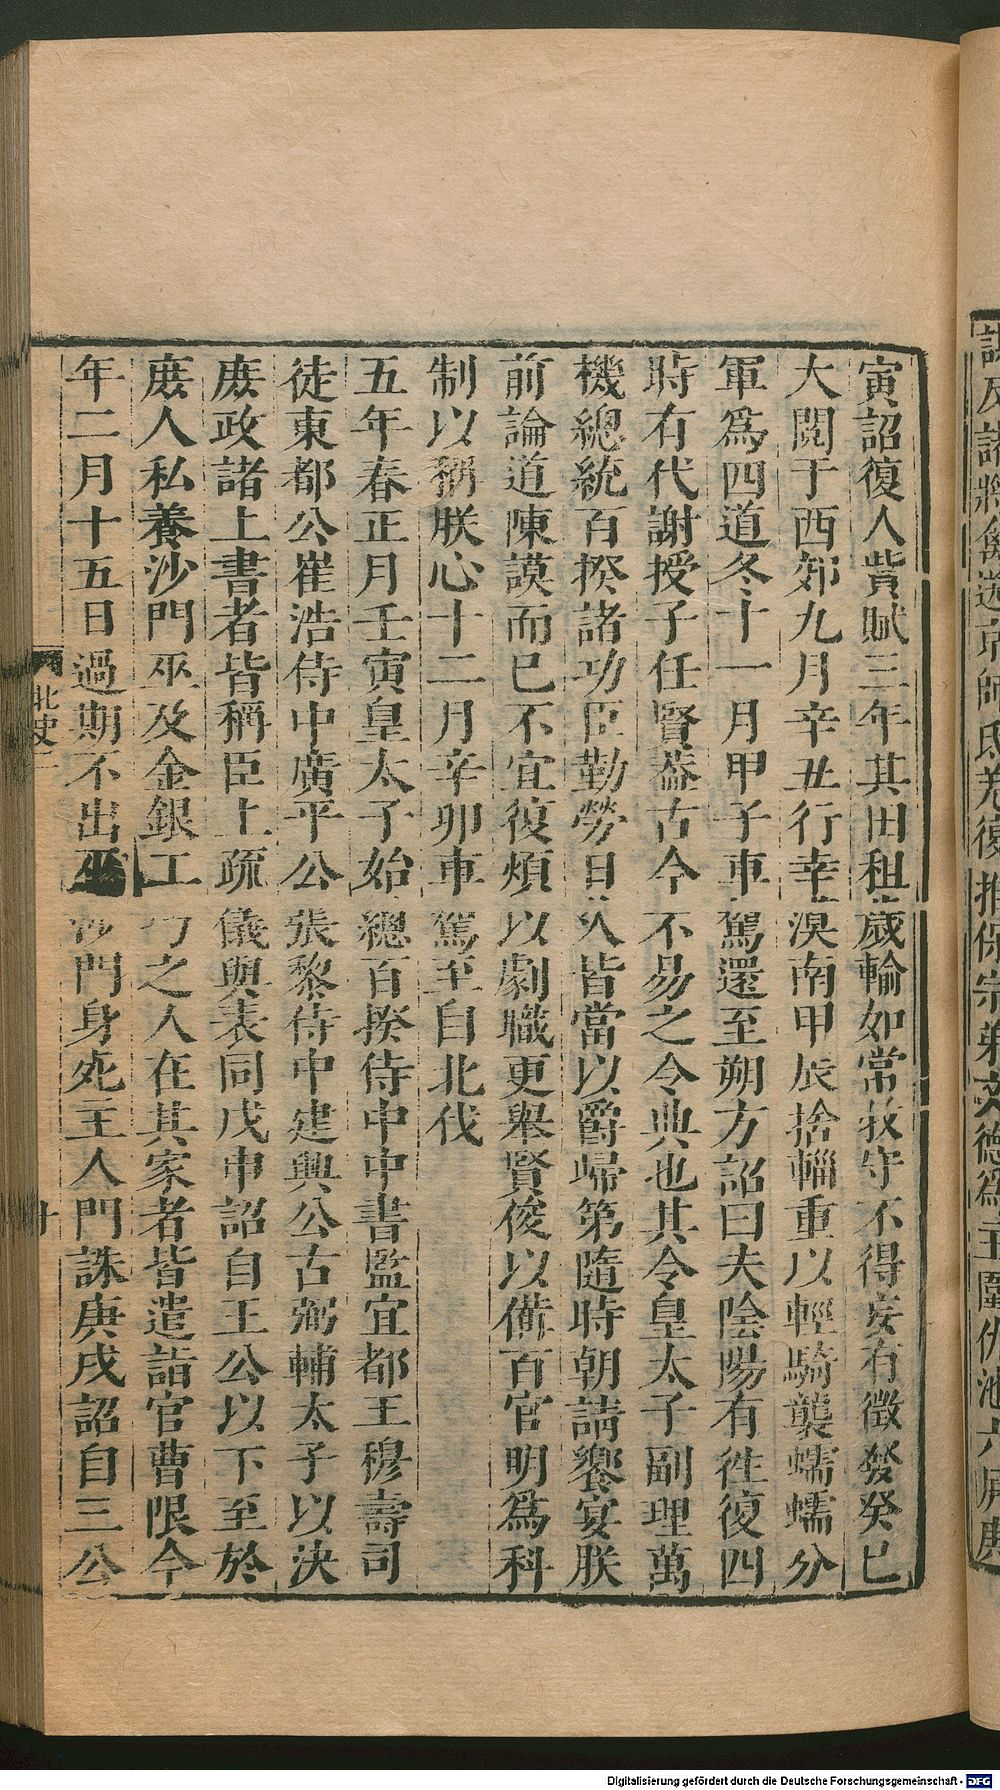 寅詔復人貲賦三年其田租歲輸如常牧守不得妄有徵發癸巳
大閱于西郊九月辛丑行幸漠南甲辰捨輜重以輕騎襲蠕蠕分
軍爲四道冬十一月甲子車駕還至朔方詔曰夫陰陽有徃復四
時有代謝授子任賢葢古今不易之令典也其令皇太子副理萬
機總統百揆諸功臣勤勞日久皆當以爵歸第隨時朝請饗宴朕
前論道陳謨而已不宜復煩以劇職更舉賢俊以備百官明爲科
制以稱朕心十二月辛卯車駕至自北伐
五年春正月壬寅皇太子始總百揆侍中中書監宜都王穆壽司
徒東都公崔浩侍中廣平公張黎侍中建興公古弼輔太子以決
庶政諸上書者皆稱臣上疏儀與表同戊申詔自王公以下至於
庶人私養沙門巫及金銀工巧之人在其家者皆遣詣官曹限今
年二月十五日過期不出巫沙門身死主人門誅庚戌詔自三公
北史一
十
將 送京師氐羌復推保宗弟文德爲主圍仇池六月庚
Digitalisierung gefördert durch die Deutsche Forschungsgemeinschaft - DFG